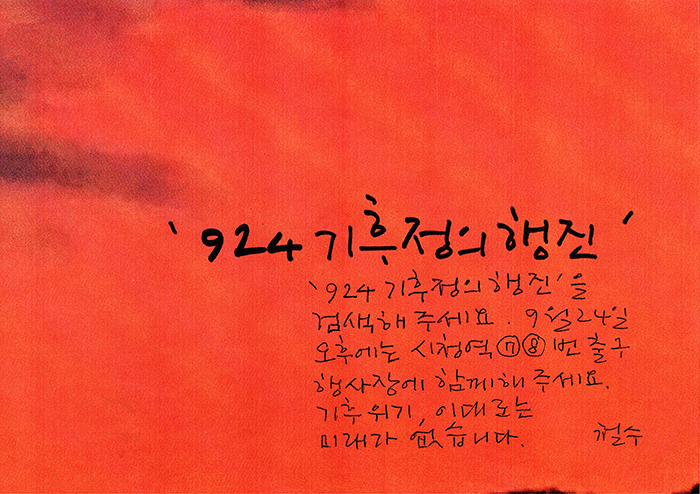 '924 기후정의행진'
'924 기후정의행진'을
검색해 주세요. 9월24일
오후에는 시청역 ⑦⑧번 출구
행사장에 함께해 주세요.
기후위기, 이대로는
미래가 없습니다. 철수